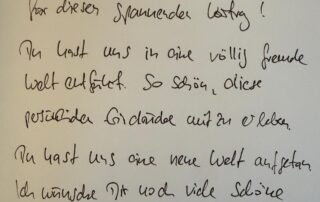 für diesen spannenden Vortrag!
Du hast uns in eine völlig fremde
Welt entführt. So schön, diese
persönlichen Eindrücke mit zu erleben.
Du hast uns eine neue Welt aufgetan
Ich wünsche Dir noch viele schöne